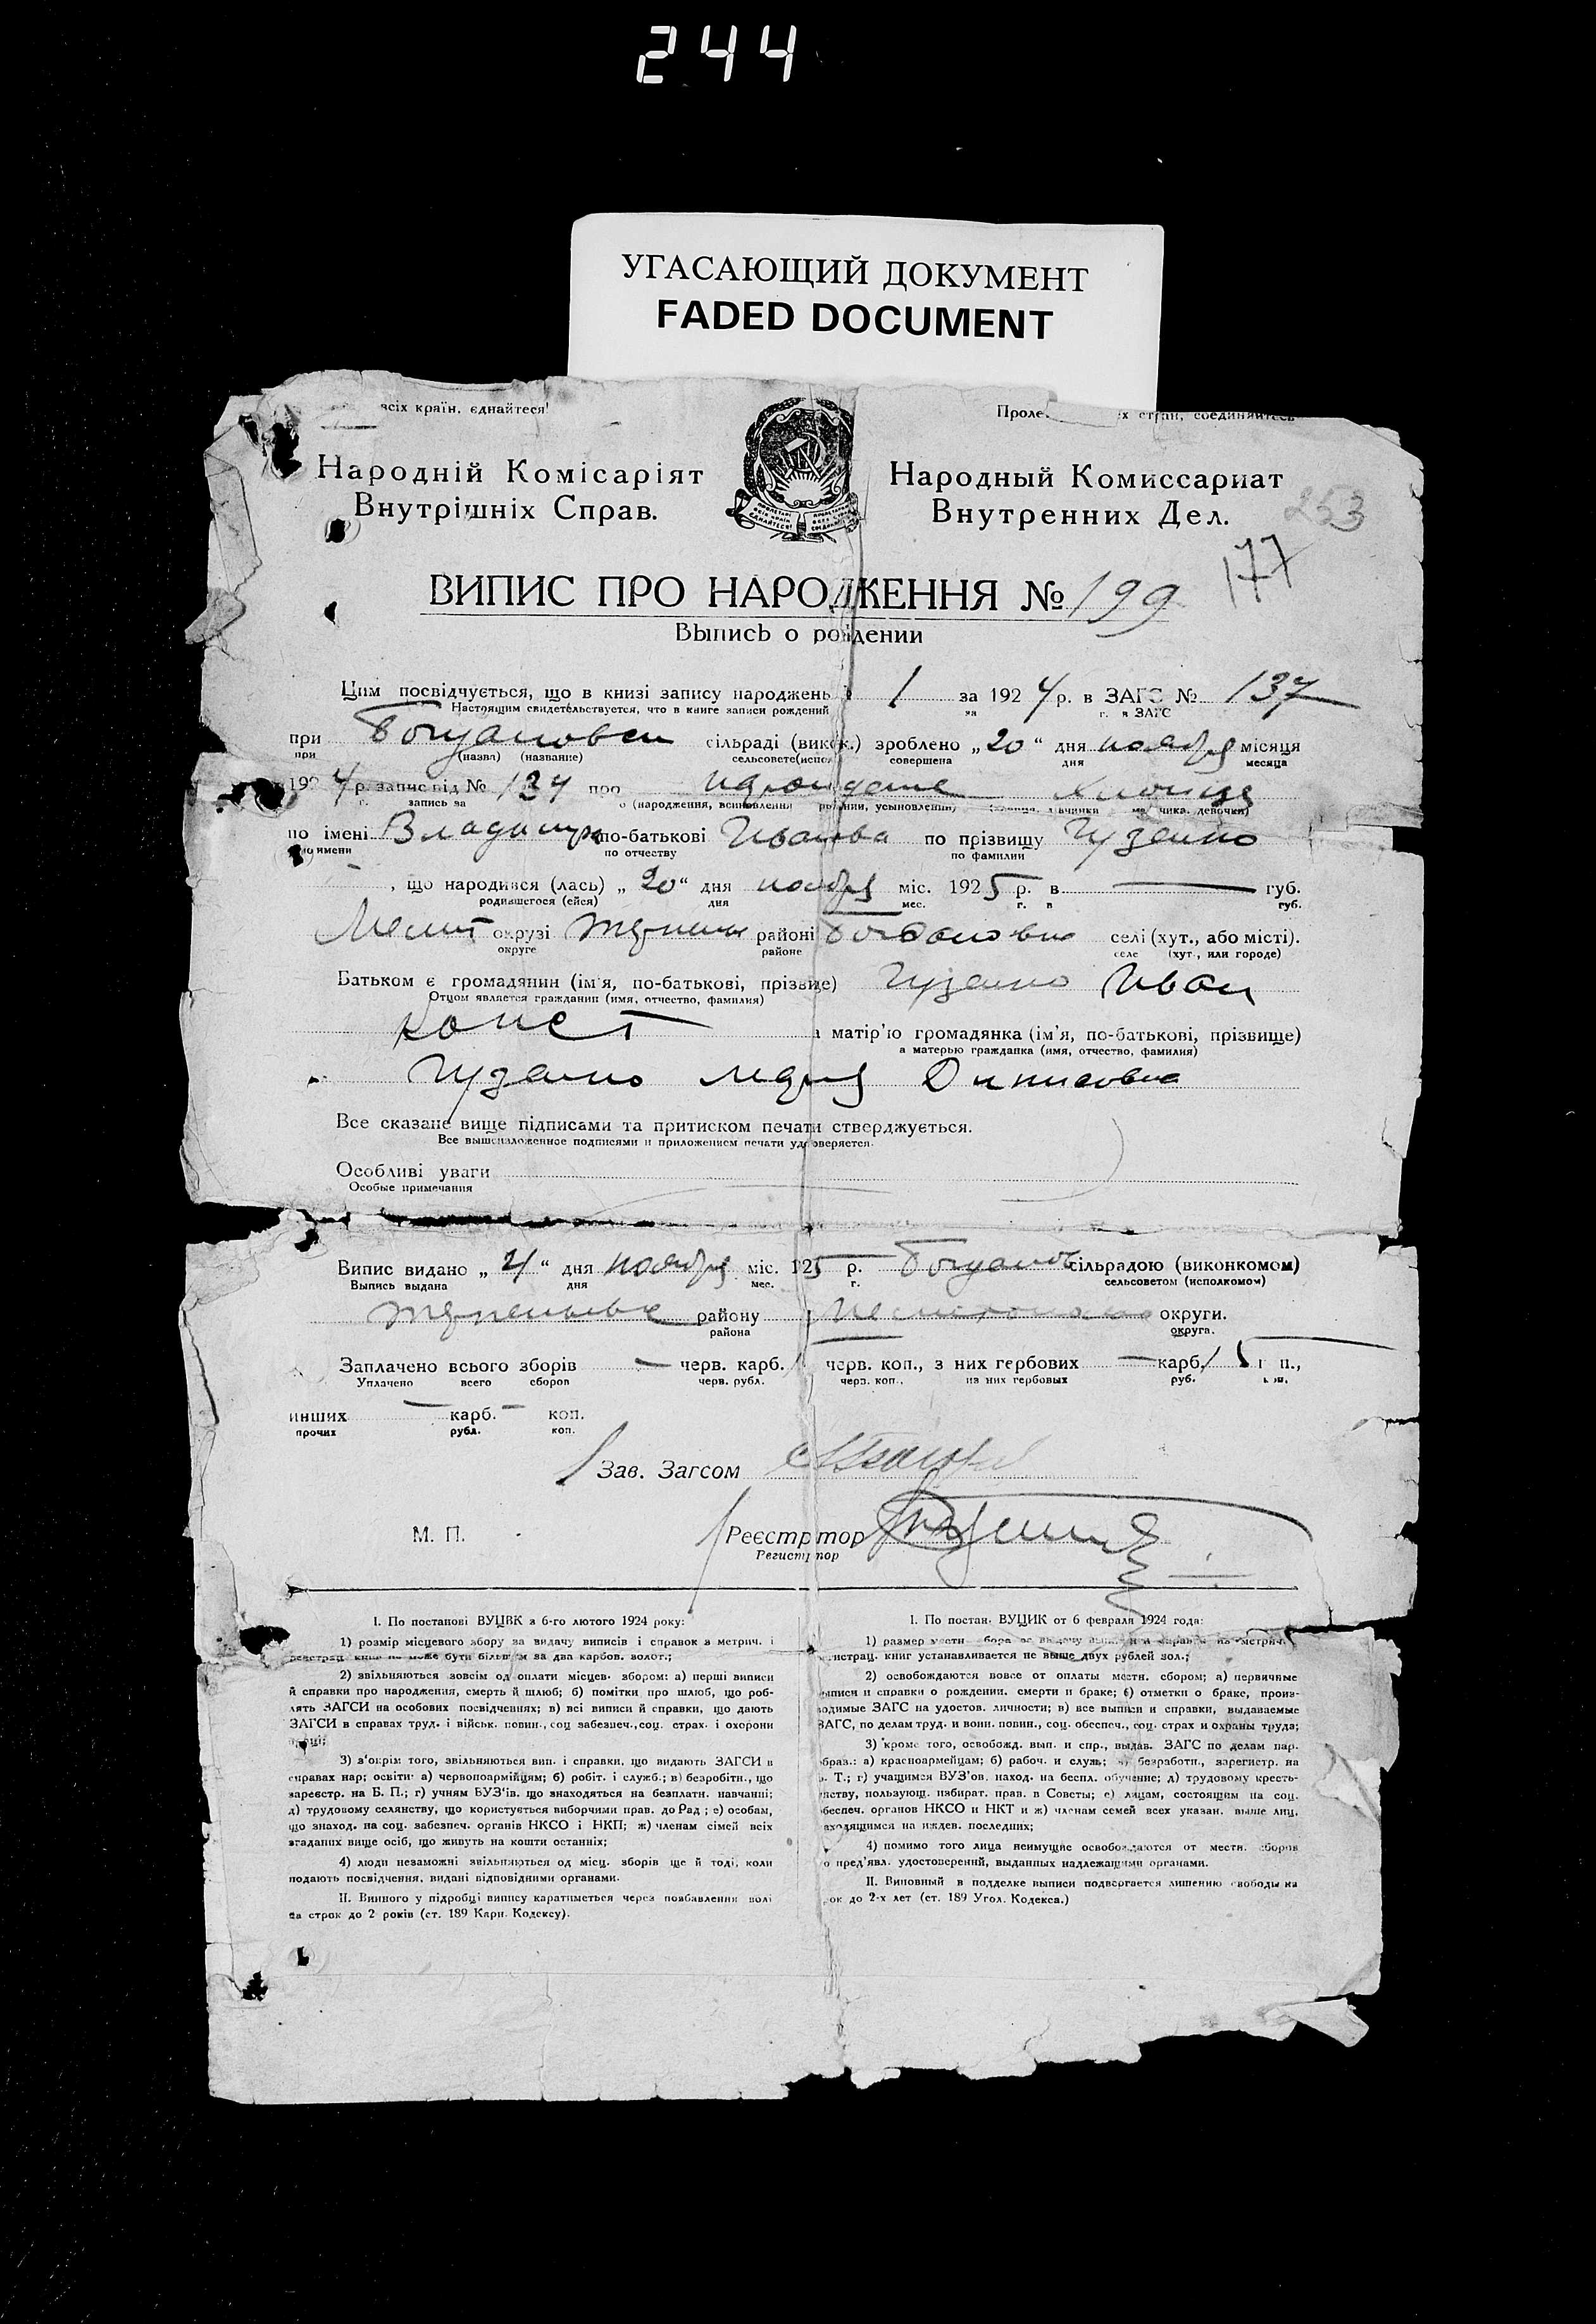 244
УГАСАЮЩИЙ ДОКУМЕНТ
FADED DOCUMENT
всіх країн, єднайтеся!
Проле х стран, соединяйтесь
Народній Комісаріят
Внутрішніх Справ.
Народный Комиссариат
Внутренних Дел.
253
177
ВИПИС ПРО НАРОДЖЕННЯ № 199
Выпись о рождении
Цим посвідчується, що в книзі запису народжень 1 за 1924 р. в ЗАГС № 137
Настоящим свидетельствуется, что в книге записи рождений за г. в ЗАГС
при сільраді (викон.) зроблено „20“ дня ноября місяця
при (назва) (название) сельсовете(испол совершена дня месяца
192 4 р. запис під № 137 про
г. запись за о (народження, всиновлення рождении, усыновлении)
по імені Владимир по-батькові Иванова по прізвищу Гузенко
по имени по отчеству по фамилии
, що народився (лась) „20“ дня ноября міс. 1925 р. в — губ.
родившегося (ейся) дня мес. г. в губ.
Мелит округі районі Богдановка селі (хут., або місті).
округе районе селе (хут., или городе)
Батьком є громадянин (ім'я, по-батькові, прізвище) Гузенко Иван
Отцом является гражданин (имя, отчество, фамилия)
Конст а матір'ю громадянка (ім'я, по-батькові, прізвище)
а матерью гражданка (имя, отчество, фамилия)
Гузенко Мария Денисовна
Все сказане вище підписами та притиском печати стверджується.
Все вышеизложенное подписями и приложением печати удостоверяется.
Особливі уваги
Особые примечания
Випис видано „21“ дня ноября міс. 1925 р. сільрадою (виконкомом)
Выпись выдана дня мес. г. сельсоветом (исполкомом)
району округи.
района округа.
Заплачено всього зборів — черв. карб. черв. коп., з них гербових — карб. 15 п.,
Уплачено всего сборов черв. рубл. черв. коп., из них гербовых руб.
инших — карб. — коп.
прочих рубл. коп.
Зав. Загсом
М. П.
Реєстратор
Регистратор
I. По постанові ВУЦВК з 6-го лютого 1924 року:
1) розмір місцевого збору за видачу виписів і справок з метрич. і
реєстрац. книг не може бути більшим за два карбов. золот.;
2) звільняються зовсім од оплати місцев. збором: а) перші виписи
й справки про народження, смерть й шлюб; б) помітки про шлюб, що роб-
лять ЗАГСИ на особових посвідченнях; в) всі виписи й справки, що дають
ЗАГСИ в справах труд. і військ. повин., соц забезпеч., соц. страх. і охорони
праці;
3) з'окрім того, звільняються вип. і справки, що видають ЗАГСИ в
справах нар; освіти: а) червоноармійцям; б) робіт. і служб.; в) безробітн., що
зареєстр. на Б. П.; г) учням ВУЗ'ів, що знаходяться на безплатн. навчанні;
д) трудовому селянству, що користується виборчими прав. до Рад; е) особам,
що знаход. на соц. забезпеч. органів НКСО і НКП; ж) членам сімей всіх
згаданих вище осіб, що живуть на кошти останніх;
4) люди незаможні звільняються од місц. зборів ще й тоді, коли
подають посвідчення, видані відповідними органами.
II. Винного у підробці випису каратиметься через позбавлення волі
на строк до 2 років (ст. 189 Карн. Кодексу).
I. По постан. ВУЦИК от 6 февраля 1924 года:
1) размер местн сбора за выдачу
истрац. книг устанавливается не выше двух рублей зол.;
2) освобождаются вовсе от оплаты местн. сбором; а) первичные
выписи и справки о рождении, смерти и браке; б) отметки о браке, произ-
водимые ЗАГС на удостов. личности; в) все выписи и справки, выдаваемые
ЗАГС, по делам труд. и воин. повин., соц. обеспеч., соц. страх и охраны труда;
3) кроме того, освобожд. вып. и спр., выдав. ЗАГС по делам нар.
образ.: а) красноармейцам; б) рабоч. и служ; в) безработн., зарегистр. на
Б. Т.; г) учащимся ВУЗ'ов, наход. на беспл. обучение; д) трудовому кресть-
янству, пользующ. избират. прав. в Советы; е) лицам, состоящим на соц.
обеспеч. органов НКСО и НКТ и ж) членам семей всех указан. выше лиц,
находящимся на иждев. последних;
4) помимо того лица неимущие освобождаются от местн. сборов
о пред'явл. удостоверений, выданных надлежащими органами.
II. Виновный в подделке выписи подвергается лишению свободы на
срок до 2-х лет (ст. 189 Угол. Кодекса.)